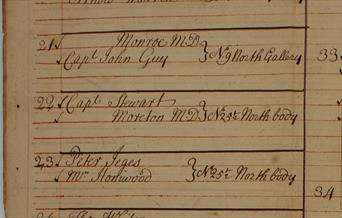 21 Monroe M.D.
Capt. John Guy } N.9 North Gallery 33
22 Capt. Stewart
Moreton M.D. } No. 25 North body
23 Peter Jeges
Mr. Honiwood } No. 25 North body
34